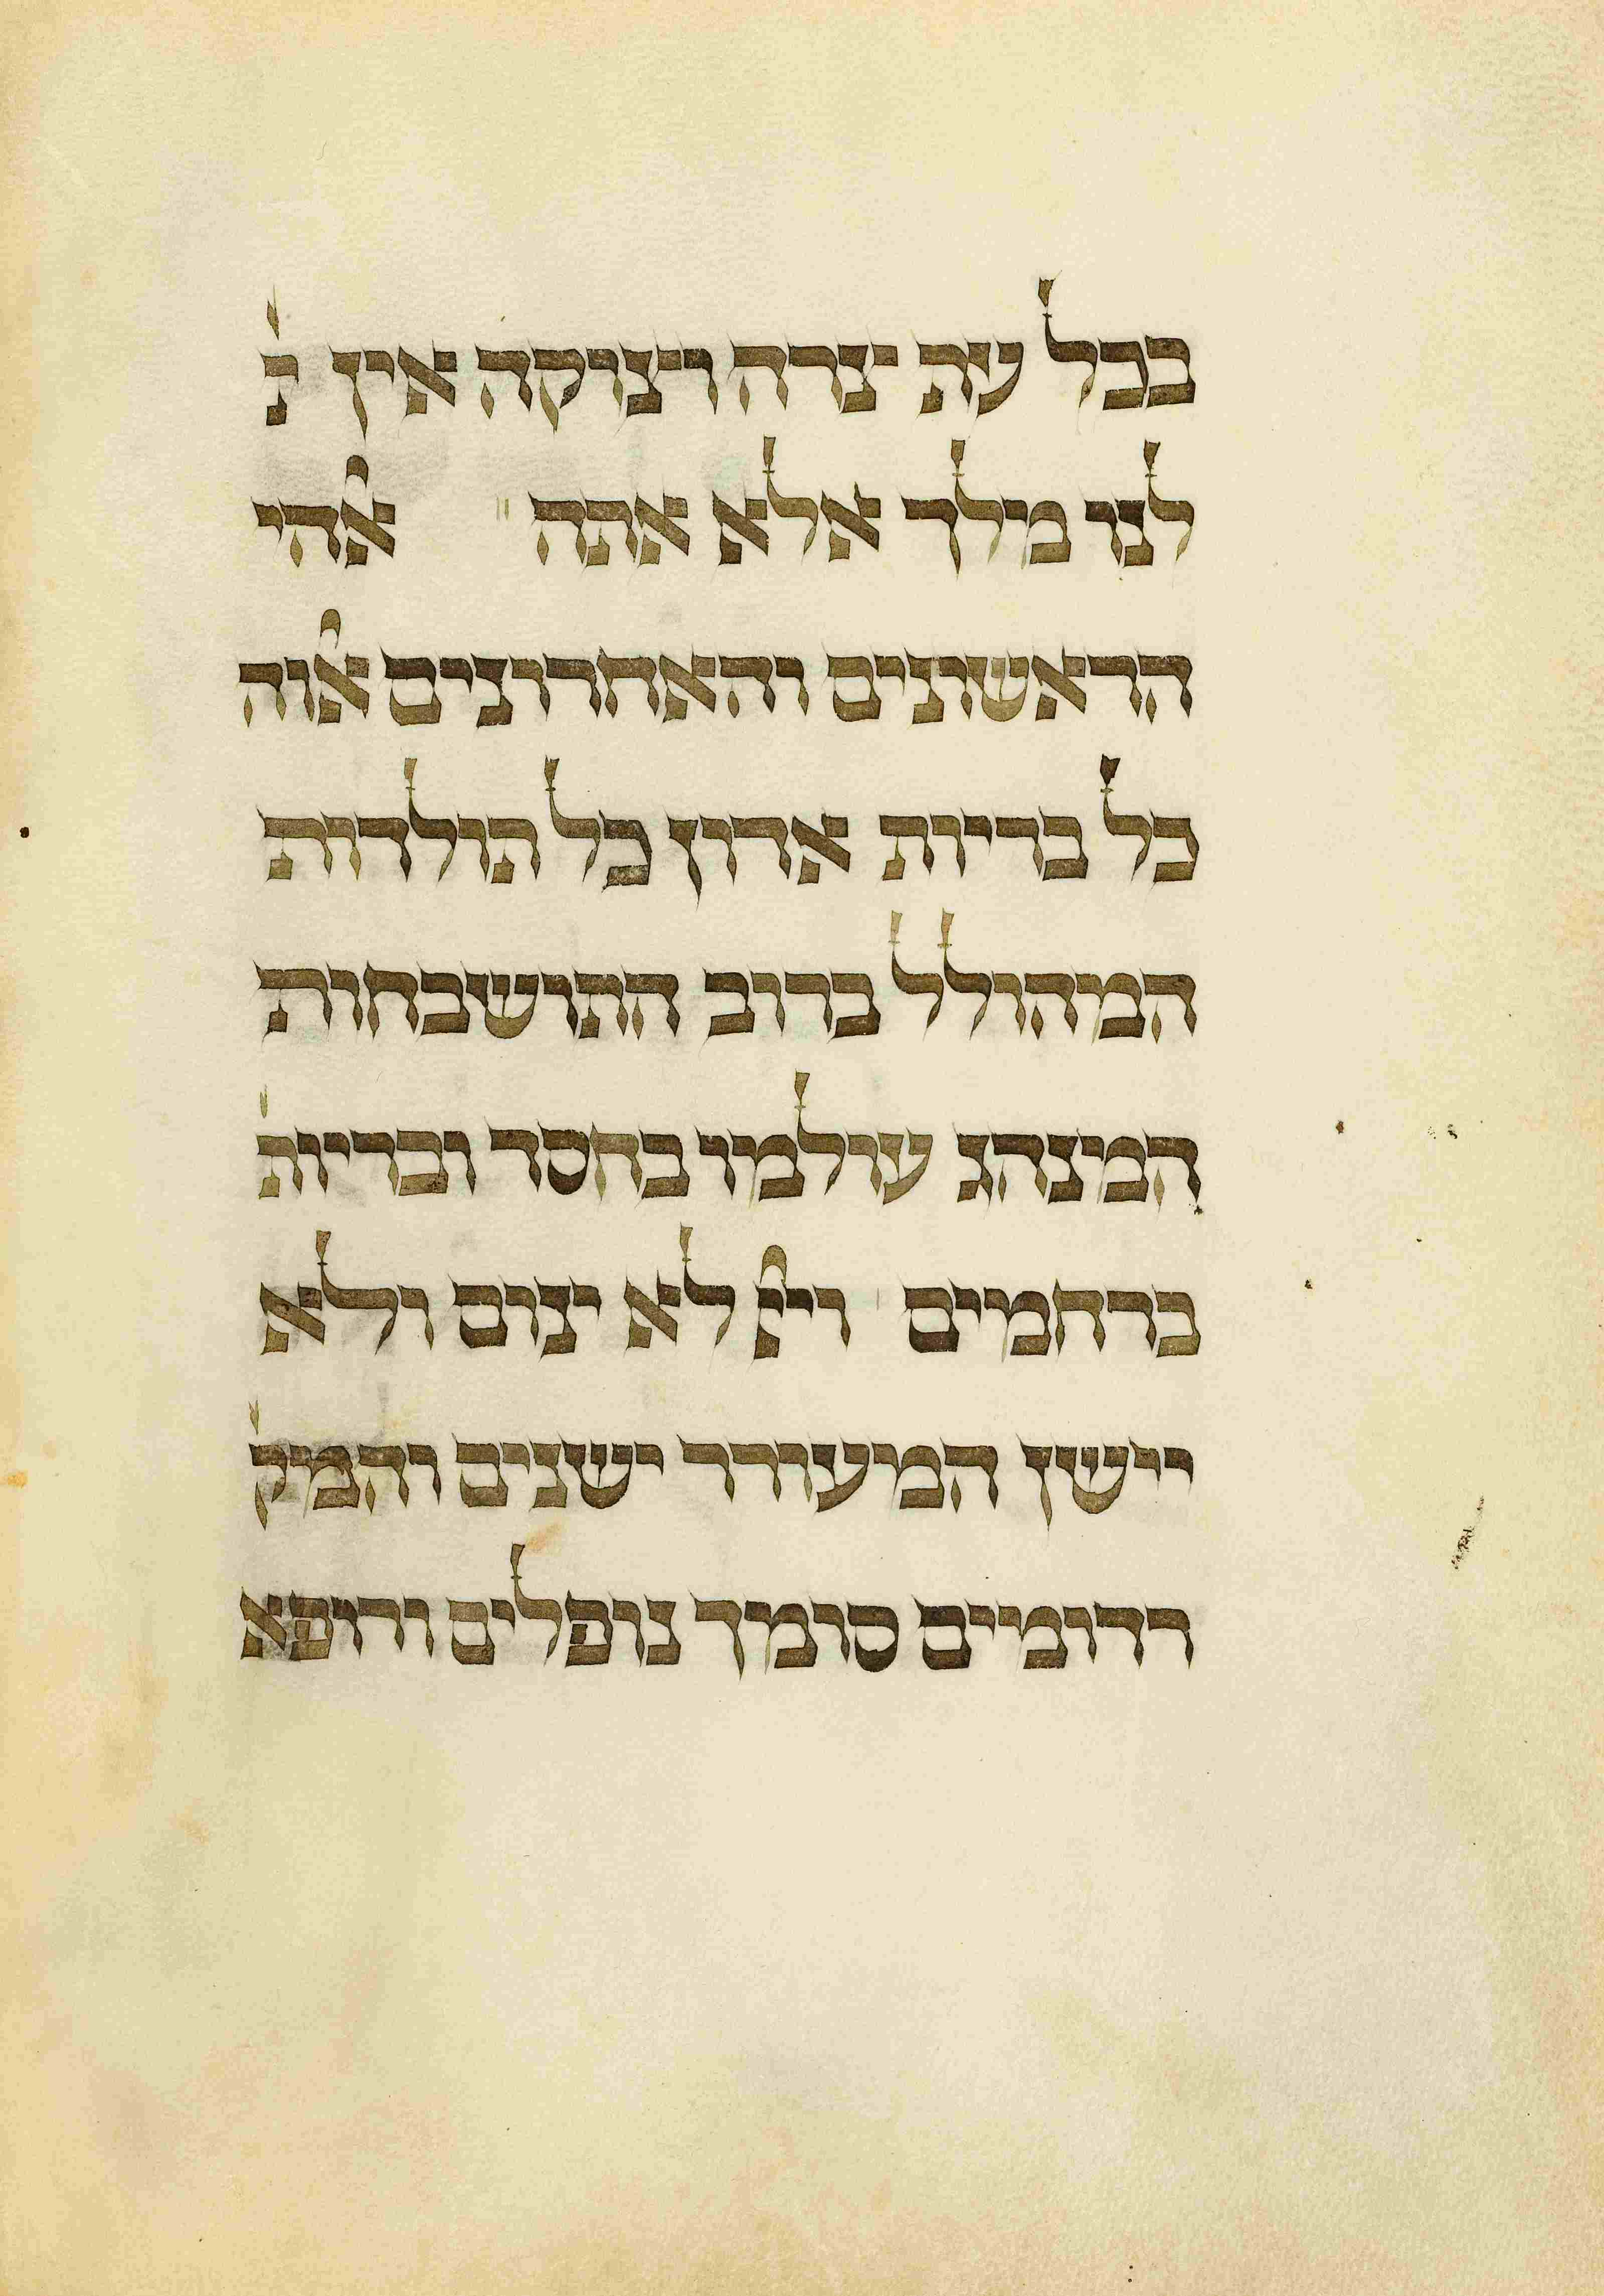 בכל עת צרה וצוקה אין
לנו מלך אלא אתה: ﭏהי
הראשונים והאחרונים ﭏוה
כל בריות אדון כל תולדות
המהולל ברוב התושבחות
המנהג עולמו בחסד ובריות'
ברחמים ויי לא ינום ולא
יישן המעורר ישנים והמק'
רדומים סומך נופלים ורופא